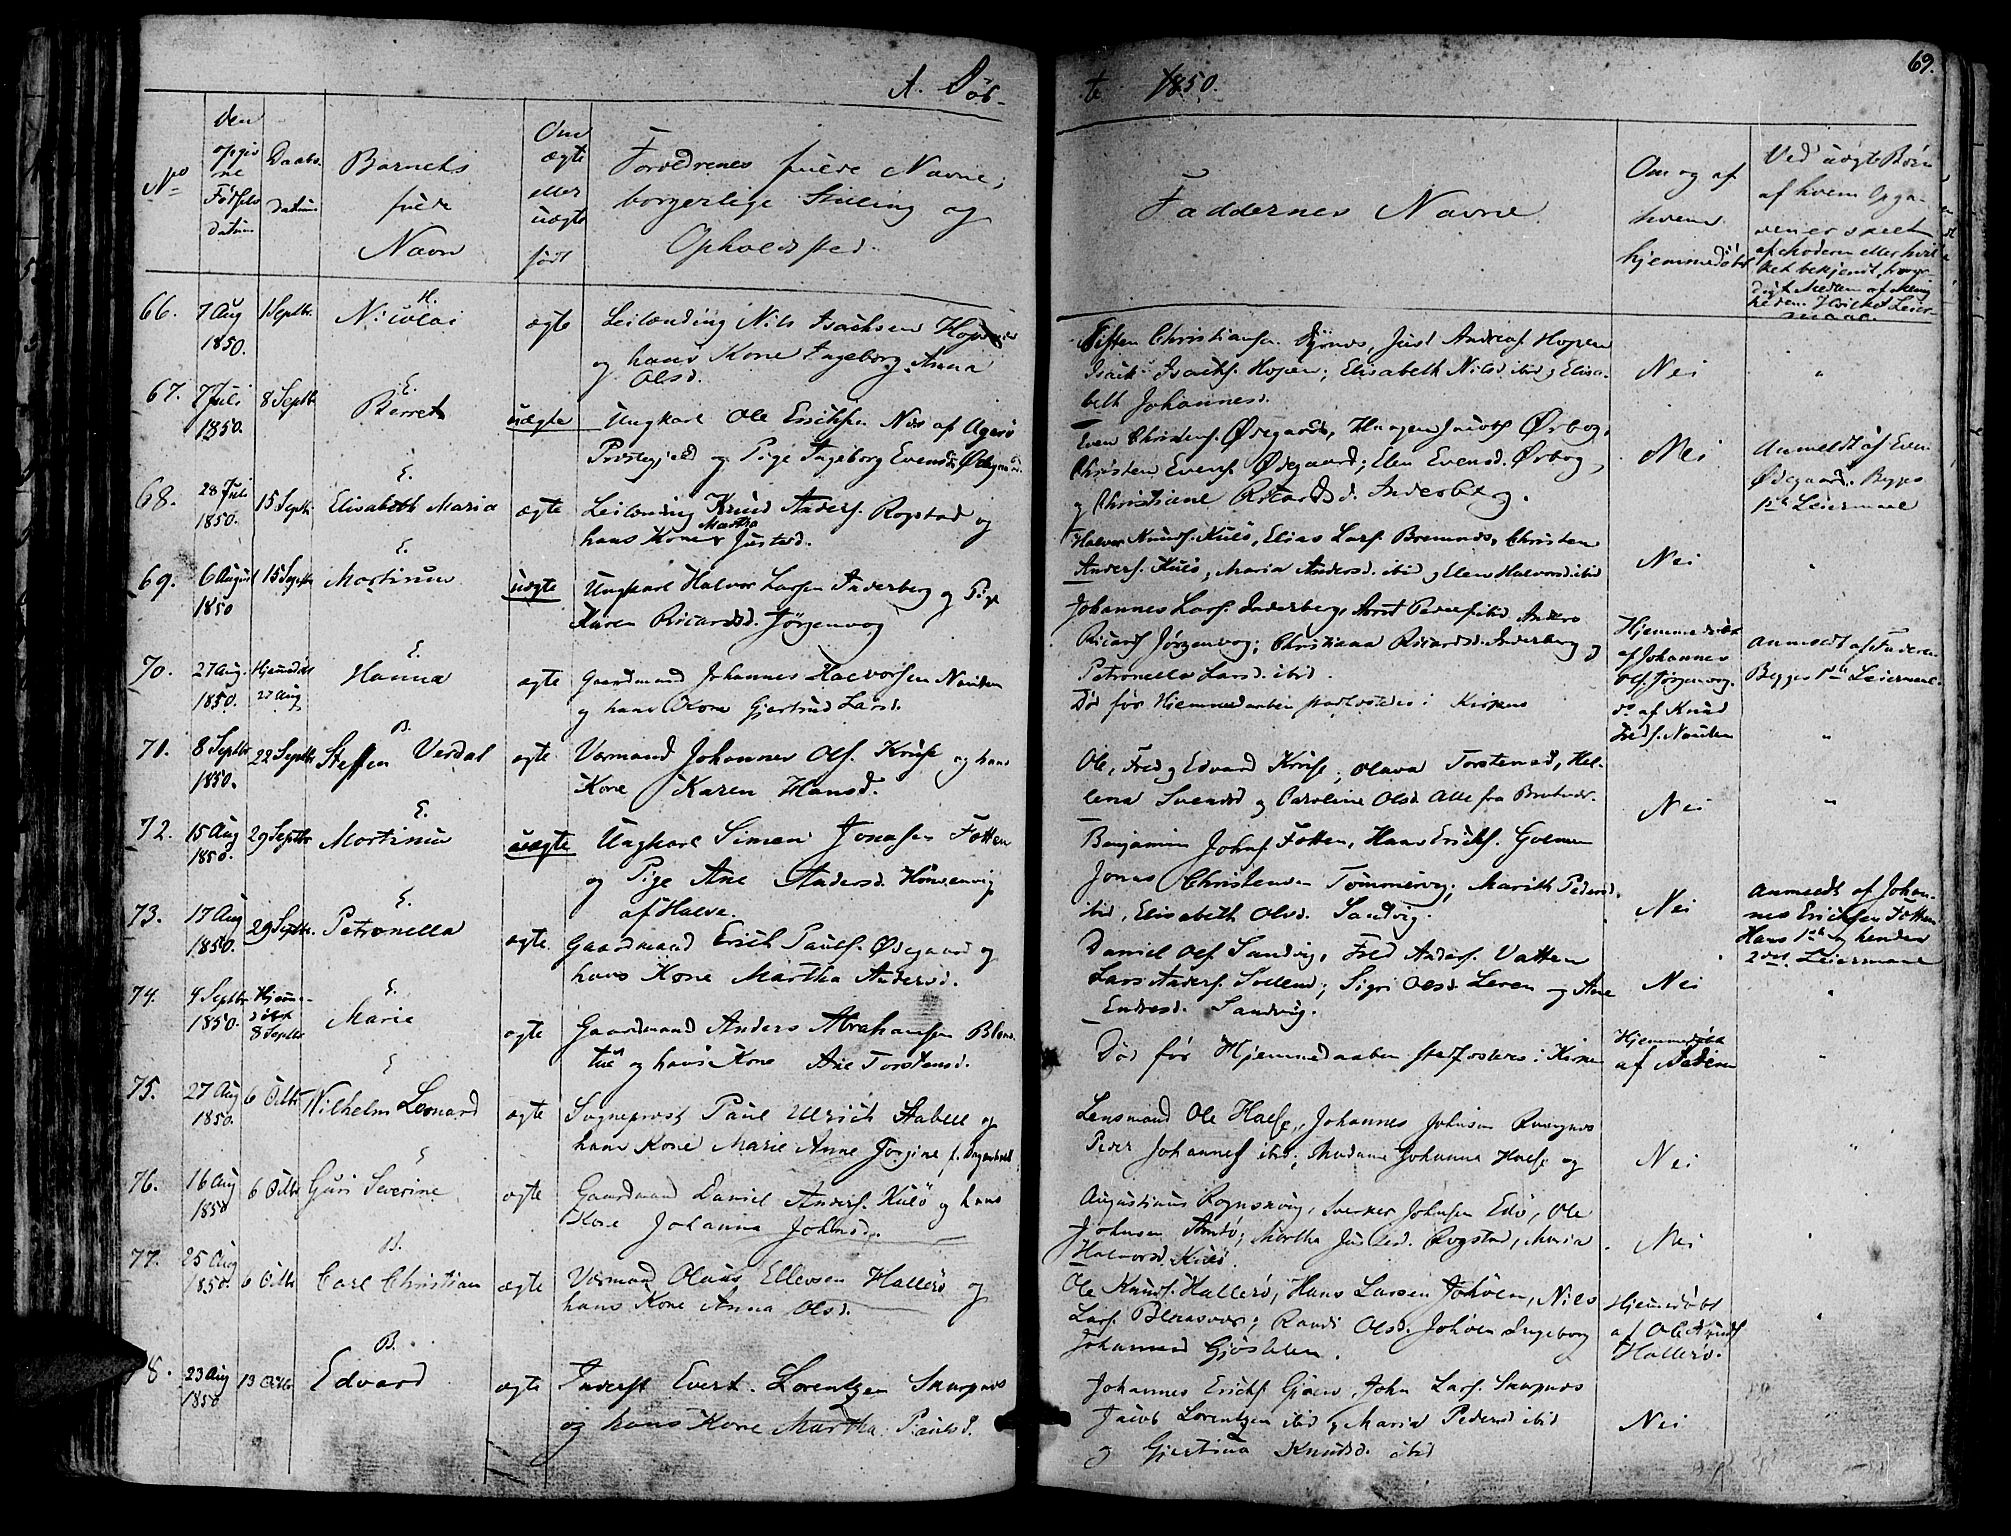 69.
A. Döb-
te 1850.
No
Den opgivne Fødsels datum
Daabs datum
Barnets fulde Navn
Om ægte eller uægte født
Forældrenes fulde Navne, borgerlige Stilling og Opholdsted.
Faddernes Navne.
Om og af hvem hjemmedöbt
Ved uægte Börn af hvem Opgaven er skeet
66. 7 Aug 1850. 1 Septbr. H. Nicolai ægte
Leilænding Nils Isachsen Hopen
og hans Kone Ingeborg Anna
Olsd.
Steffen Christiansen, Just Andreas. Hopen
Isach Isachs. Hopen; Elisabeth Nilsd. ibid, Elisa-
beth Johannesd.
Nei
67. 7 Juli 1850. 8 Septbr E. Berret uægte
Ungkarl Ole Erichsen Næs af Agerö
Præstegjeld og Pige Ingeborg Evensd. Ødegaard.
Even Christens. Ødegaard, Haagen Jacobs. Ørbog,
Christen Evens. Ødegaard; Elen Evensd. Ørbog,
og Christiane Ricardsd. Inderberg.
Nei
Anmeldt af Even
Ødegaard. Begges
1ste Leiermaal
68. 28 Juli 1850. 15 Septbr E. Elisabeth Maria ægte
Leilænding Knud Anders. Rogstad og
hans Kone Martha Justsd.
Halvor Knuds. Kulö, Elias Lars. Bremnes, Christen
Anders. Kulö, Maria Andersd. ibid, Elen Halvorsd. ibid
Nei
69. 6 August 1850 15 Septbr E. Martinus uægte
Ungkarl Halvor Larsen Inderberg og Pige
Karen Ricardsd. Jörgenvog
Johannes Lars. Inderberg, Arnt Pauls. ibid, Anders
Ricards. Jörgenvog; Christiana Ricardsd. Inderberg og
Petronella Larsd. ibid.
Hjemmedöbt
af Johannes
Ols. Jörgenvog.
Anmeldt af Faderen
Begges 1ste Leiermaal.
70. 27 Aug. 1850. Hjemmedöbt 27 Aug E. Hanna ægte
Gaardmand Johannes Halvorsen Nauten
og hans Kone Gjertrud Larsd.
Död för Hjemmedaaben stadfæstedes i Kirken
do af Knud
Freds. Nauten
71. 8 Septbr 1850. 22 Septbr B. Steffen Verdal ægte
Vormand Johannes Ols. Kruse og hans
Kone Karen Hansd.
Ole, Fred og Edvard Kruse; Olava Torstensd, Hel-
lena Svendsd og Caroline Olsd. Alle fra
Nei
72. 15 Aug 1850. 29 Septbr E. Martinus uægte
Ungkarl Simen Jonasen Fotten
og Pige Ane Andersd. Hönsenvig
af Halse.
Benjamin Johns. Fotten, Hans Erichs. Gomen
Jonas Christensen Tömmervog; Marith Pedersd.
ibid, Elisabeth Olsd. Sandvig.
Nei
Anmeldt af Johan-
nes Erichsen Fotten
Hans 1ste og hendes
2det Leiermaal
73. 17 Aug 1850. 29 Septbr. E. Petronella ægte
Gaardmand Erich Pauls. Ødegaard og
hans Kone Martha Andersd.
Daniel Ols. Sandvig, Fred Anders. Vatten
Lars Anders. Sollend; Sigri Olsd. Leren og Ane
Endresd. Sandvig.
Nei
74. 4 Septbr 1850. Hjemmedöbt 8 Septbr E. Marie ægte
Gaardmand Anders Abrahamsen
og hans Kone Ane Torstensd.
Död för Hjemmedaaben stadfæstedes i Kirken
Hjemmedöbt
af Faderen
75. 27 Aug 1850. 6 Octbr E Wilhelm Leonard ægte
Sogneprest Paul Ulrich Stabell og
hans Kone Marie Anne Jörgine f.
Lensmand Ole Halse, Johannes Johnsen Ramsnes
Peder Johannes. ibid; Madame Johanna Halse og
Nei
76. 16 Aug 1850 6 Octbr E Guri Severine ægte
Gaardmand Daniel Anders. Kulö og hans
Kone Johanna Johnsd.
Augustinus Rognskoug, Sverker Johnsen Edö, Ole
Johnsen; Martha Justsd. Rogstad, Maria
Halvorsd. Kulö.
Nei
77. 25 Aug 1850. 6 Octbr B. Carl Christian ægte
Vormand Olaus Ellevsen Hallerö og
hans Kone Anna Olsd.
Ole Knuds. Hallerö, Hans Larsen Johöen, Nils
Lars.; Randi Olsd. Johöen Ingeborg
Johannesd
Hjemmedöbt
af Ole Knuds.
Hallerö.
78. 23 Aug 1850 13 Octbr B. Edvard ægte
Inderst Evert Lorentzen Skarpnes
og hans Kone Martha Paulsd.
Johannes Erichs. Gjöen, John Lars. Skarpnes
Jacob Lorentzen ibid; Maria Pedersd ibid
og Gjertina Knudsd. ibid
Nei